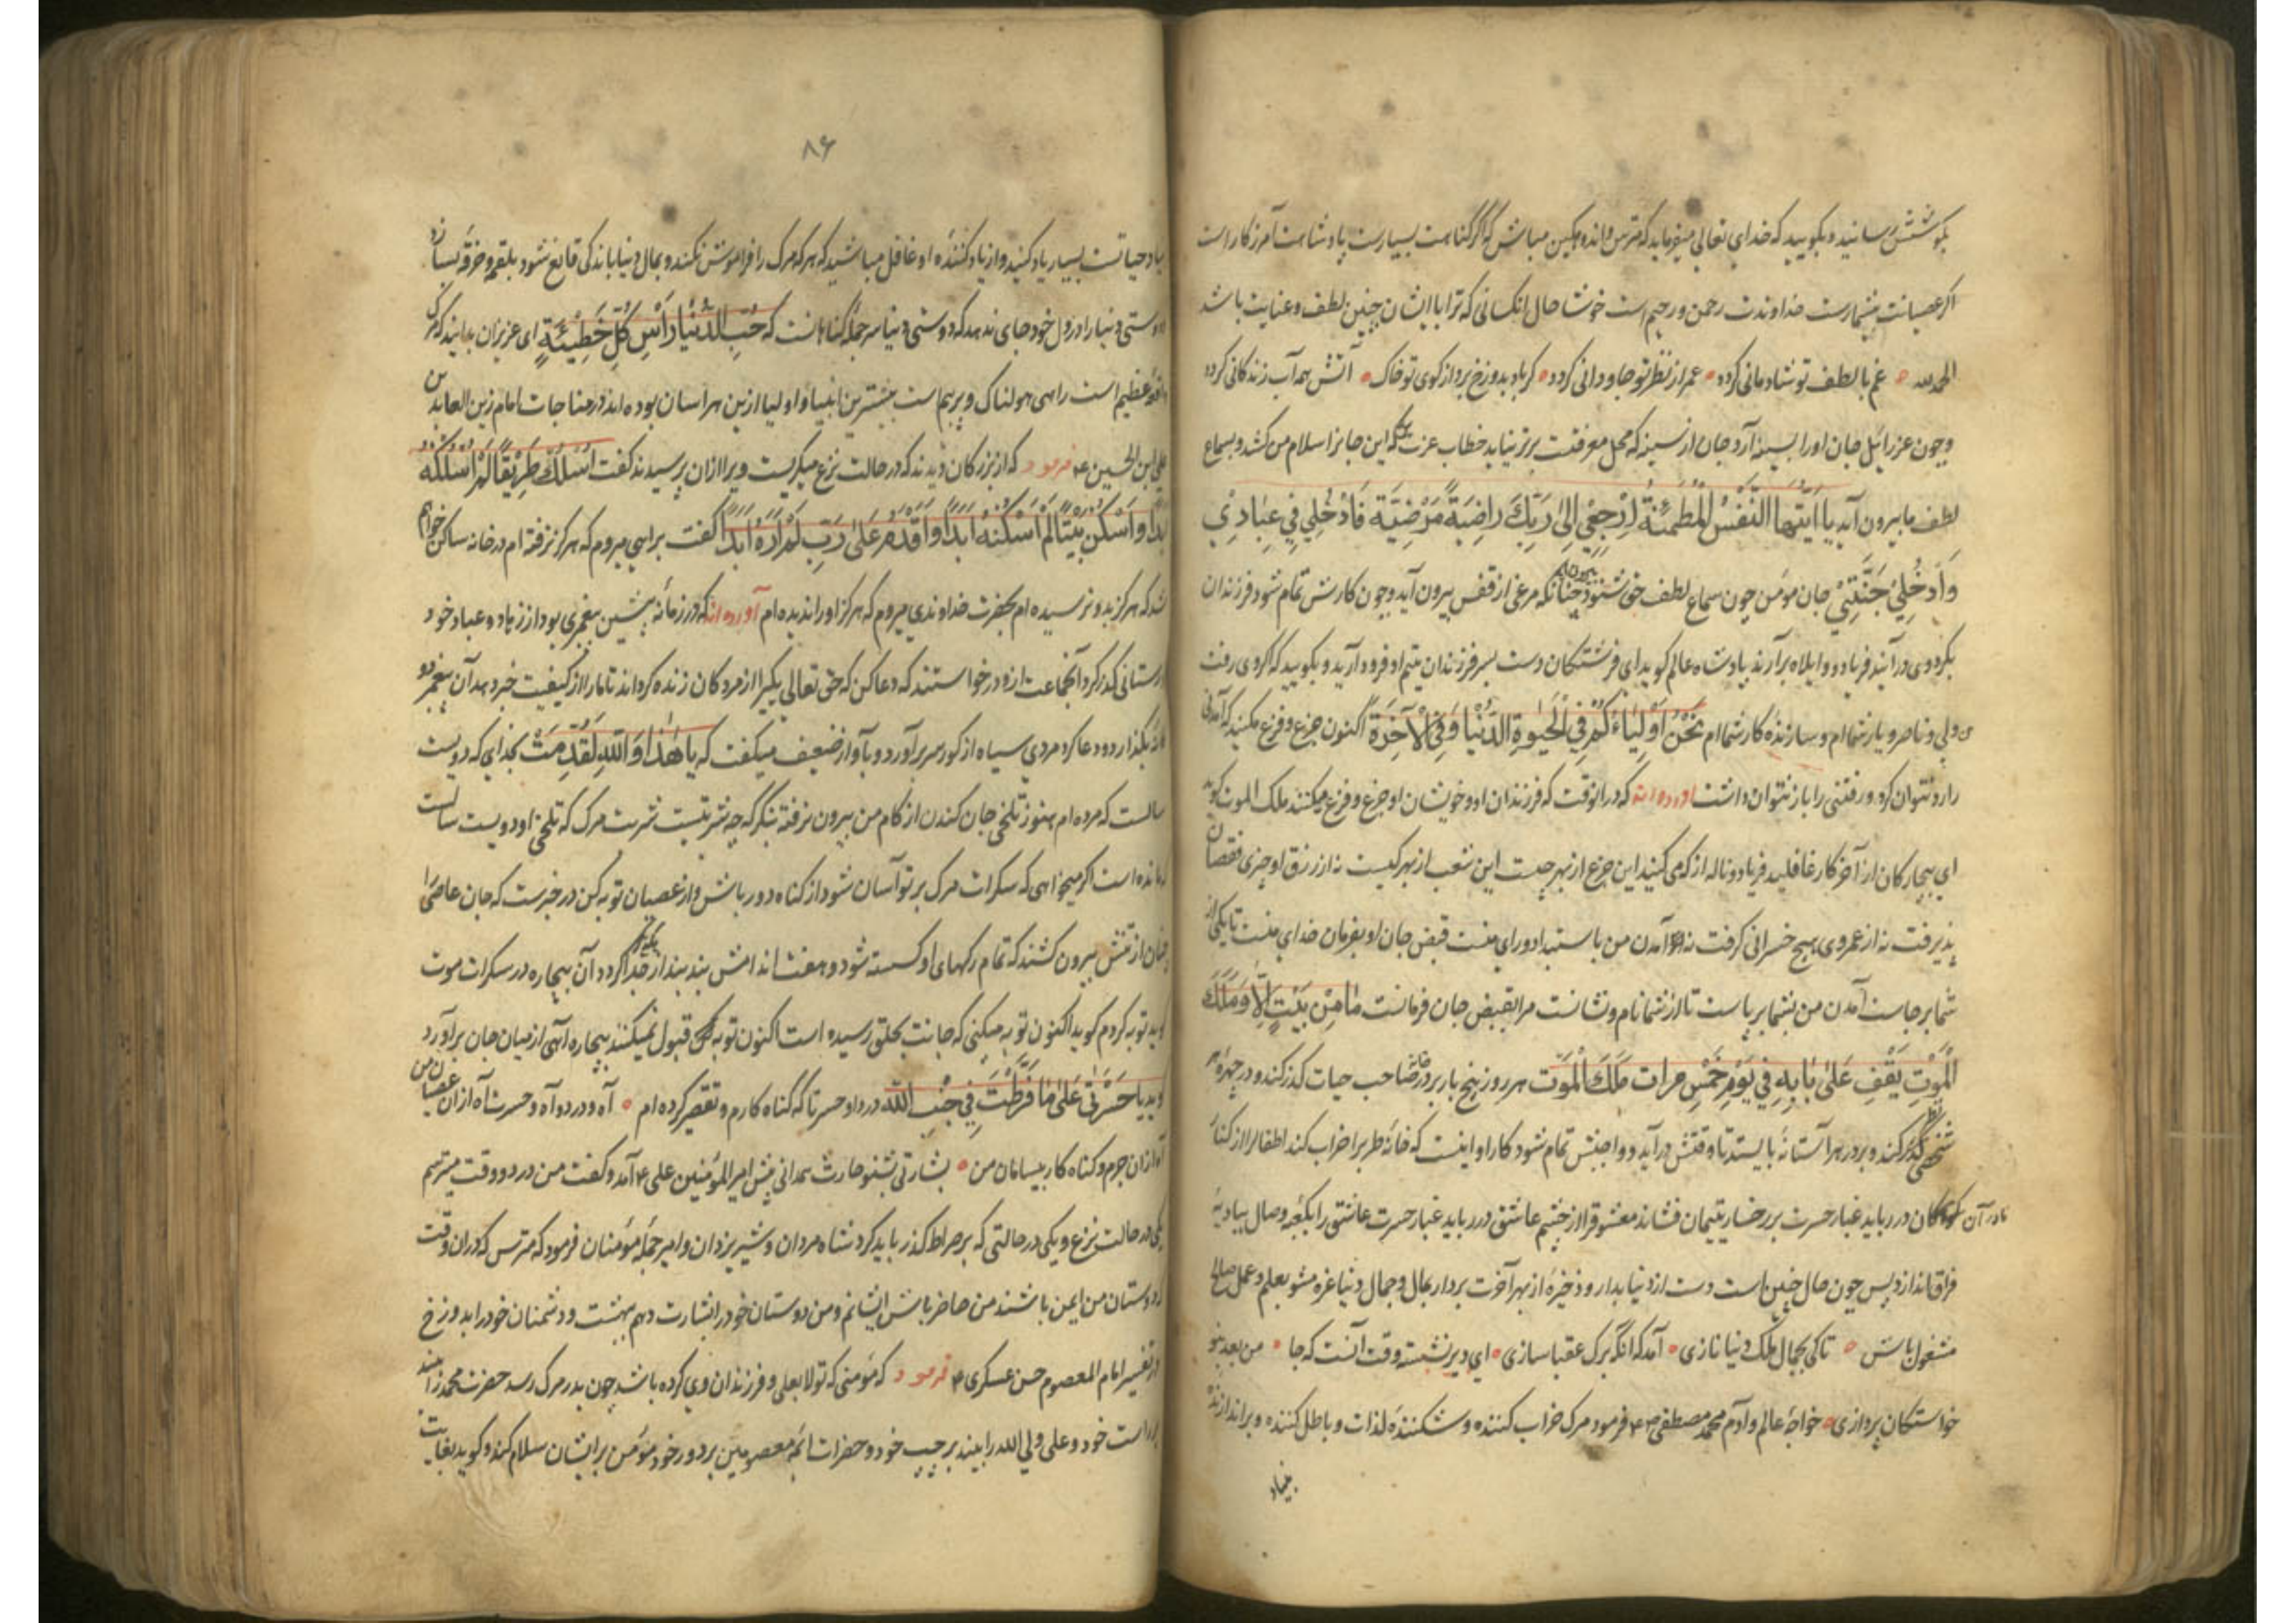 بگوشش رسانید و بگویید که خدای تعالی میفرماید که مترس و اندوهگین مباش که اگر گناهت بسیارست پادشاهت آمرزگارست
اگر عصیانت بیشمارست خداوندت رحمن و رحیم است خوشا حال انکسانی که ترا با ایشان چنین لطف و عنایت باشد
الحمدلله غم با لطف تو شادمانی گردد عمر از نظر تو جاودانی گردد گر باد بدوزخ برد از کوی تو خاک آتش همه آب زندگانی گردد
و چون عزرائیل جان اورا بسینه آرد جان از سینه که محل معرفتست برتر نیاید خطاب عزت که این جانرا سلام من کشد و بسماع
لطف ما بیرون آید یا ایتها النفس المطمئنة ارجعی الی ربک راضیة مرضیة فادخلی فی عبادی
وادخلی جنتی جان مؤمن چون سماع لطف حق شنود چنانکه مرغی از قفس بیرون آید و چون کارش تمام شود فرزندان
بگرد وی در آیند فریاد و وایلاه برآرند پادشاه عالم گوید ای فرشتگان دست بسر فرزندان یتیم او فرود آرید و بگویید که اگر وی رفت
ولی و ناصر و یار شما ام و سازنده کار شما ام نحن اولیاءکم فی الحیوة الدنیا وفی الآخرة اکنون جزع و فزع مکنید که آمدنی
را رد نتوان کرد و رفتنی را باز نتوان داشت آورده اند که در انوقت که فرزندان او و خویشان او جزع و فزع میکنند ملک الموت گوید
ای بیچارگان از آخر کار غافلید فریاد و ناله از که می کنید این جزع از بهر چیست این شغب از بهر کیست نه از رزق او چیزی نقصان
پذیرفت نه از عمر وی هیچ خسرانی گرفت نه آمدن من باستبداد و رای منست قبض جان او بفرمان خدای منست تا یکی از
شما بر جاست آمدن من بشما برپاست تا از شما نام و نشانست مرا بقبض جان فرمانست ما من بیت الا وملک
الموت یقف علی بابه فی یوم خمس مرات ملک الموت هر روز پنج بار بر در خانه صاحب حیات گذر کند و در چهره هر
شخصی نظر کند و بر در هر آستانه بایستد تا وقتش درآید و واجبش تمام شود کار او اینست که خانه طرب را خراب کند اطفال را از کنار
مادر آن کودکان در رباید غبار حسرت بر رخسار یتیمان فشاند معشوق را از چشم عاشق در رباید غبار حسرت عاشق را بکعبه وصال ببادیه
فراق اندازد پس چون حال چنین است دست از دنیا بدار و ذخیره از بهر آخرت بردار بمال و جمال دنیا غره مشو بعلم و عمل صالح
مشغول باش تا کی بجمال ملک دنیا نازی آمد که انکه برگ عقبا سازی ای دیر نشسته وقت آنست که جا من بعد بنو
خواستگان پردازی خواجه عالم و آدم محمد مصطفی فرمود مرگ خراب کننده و شکننده لذات و باطل کننده و براندازنده
بنیاد
۸۶
بنیاد حیاتست بسیار یاد کنید و از یاد کننده او غافل مباشید که هر که مرگ را فراموش نکند و بمال دنیا باندکی قانع شود بلقمه و خرقه بسازد
دوستی دنیا را در دل خود جای ندهد که دوستی دنیا سر جمله گناهانست که حب الدنیا رأس کل خطیئة ای عزیزان بدانید که مرگ
واقعه عظیم است راهی هولناک و پربیم است بیشترین انبیا و اولیا ازین هراسان بوده اند در مناجات امام زین العابدین
علی ابن الحسین فرمود که از بزرگان دیدند که در حالت نزع میگریست ویرا ازان پرسیدند گفت اسلک طریقا لم اسلکه
ابدا واسکن بیتا لم اسکنه ابدا واقدم علی رب لم اره ابدا گفت براهی میروم که هرگز نرفته ام در خانه ساکن خواهم
شد که هرگز بدو نرسیده ام بحضرت خداوندی میروم که هرگز اورا ندیده ام آورده اند که در زمانه پیشین پیغمبری بود از زهاد و عباد خود
بگورستانی گذر کرد آنجماعت ازو درخواستند که دعا کن که حق تعالی یکیرا از مردگان زنده گرداند تا مارا از کیفیت خبر دهد آن پیغمبر دو
بگذارد و دعا کرد مردی سیاه از گور سر برآورد و بآواز ضعیف میگفت که یا هذا والله لقد مت بخدای که دویست
سالست که مرده ام هنوز تلخی جان کندن از کام من بیرون نرفته بنگر که چه شربتیست شربت مرگ که تلخی او دویست سالست
مانده است اگر میخواهی که سکرات مرگ بر تو آسان شود از گناه دور باش و از عصیان توبه کن در خبرست که جان عاصی را
چنان از تنش بیرون کشند که تمام رگهای او گسسته شود و هفت اندامش بند بند از یکدیگر جدا گردد آن بیچاره در سکرات موت
گوید توبه کردم گوید اکنون توبه میکنی که جانت بحلق رسیده است اکنون توبه قبول نمیکنند بیچاره آهی از میان جان برآورد
گوید یا حسرتی علی ما فرطت فی جنب الله دردا و حسرتا که گناه کارم و تقصیر کرده ام آه و درد و آه و حسرت آه ازان عصیان من
آه ازان جرم و گناه کار بیسامان من بشارتی بشنو حارث همدانی پیش امیرالمؤمنین علی آمد و گفت من در دو وقت میترسم
یکی در حالت نزع و یکی در حالتی که بر صراط گذر باید کرد شاه مردان و شیر یزدان و امیر جمله مؤمنان فرمود که مترس که دران وقت
که دوستان من ایمن باشند من حاضر باشم ایشانم و من دوستان خود را بشارت دهم ببهشت و دشمنان خود را بدوزخ
در تفسیر امام المعصوم حسن عسکری فرمود که مؤمنی که تولا بعلی و فرزندان وی کرده باشد چون بدر مرگ رسد حضرت محمد را بیند
براست خود و علی ولی الله را بیند بر چپ خود و حضرات ائمه معصومین بر دور خود مؤمن بر ایشان سلام کند و گوید بغایت